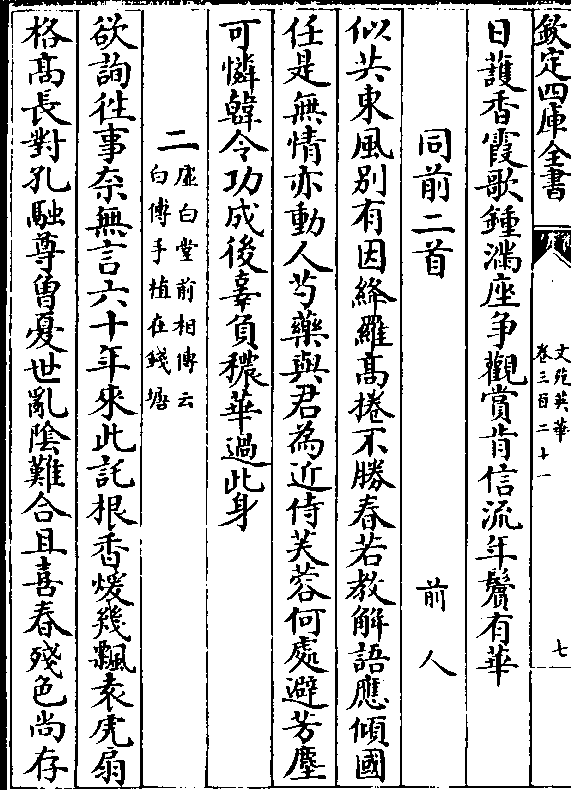 欽定四庫全書
文苑英華
卷三百二十一
七
日䕶香霞歌鍾滿座争觀賞肯信流年鬢有華
同前二首 前人
似共東風别有因絳羅髙捲不勝春若教解語應傾國
任是無情亦動人芍藥與君為近侍芙蓉何處避芳塵
可憐韓令功成後辜負穠華過此身
二
虚白堂前相傳云
白傅手植在錢塘
欲詢徃事奈無言六十年來此託根香煖幾飄袁虎扇
格髙長對孔融尊曽憂世亂陰難合且喜春殘色尚存